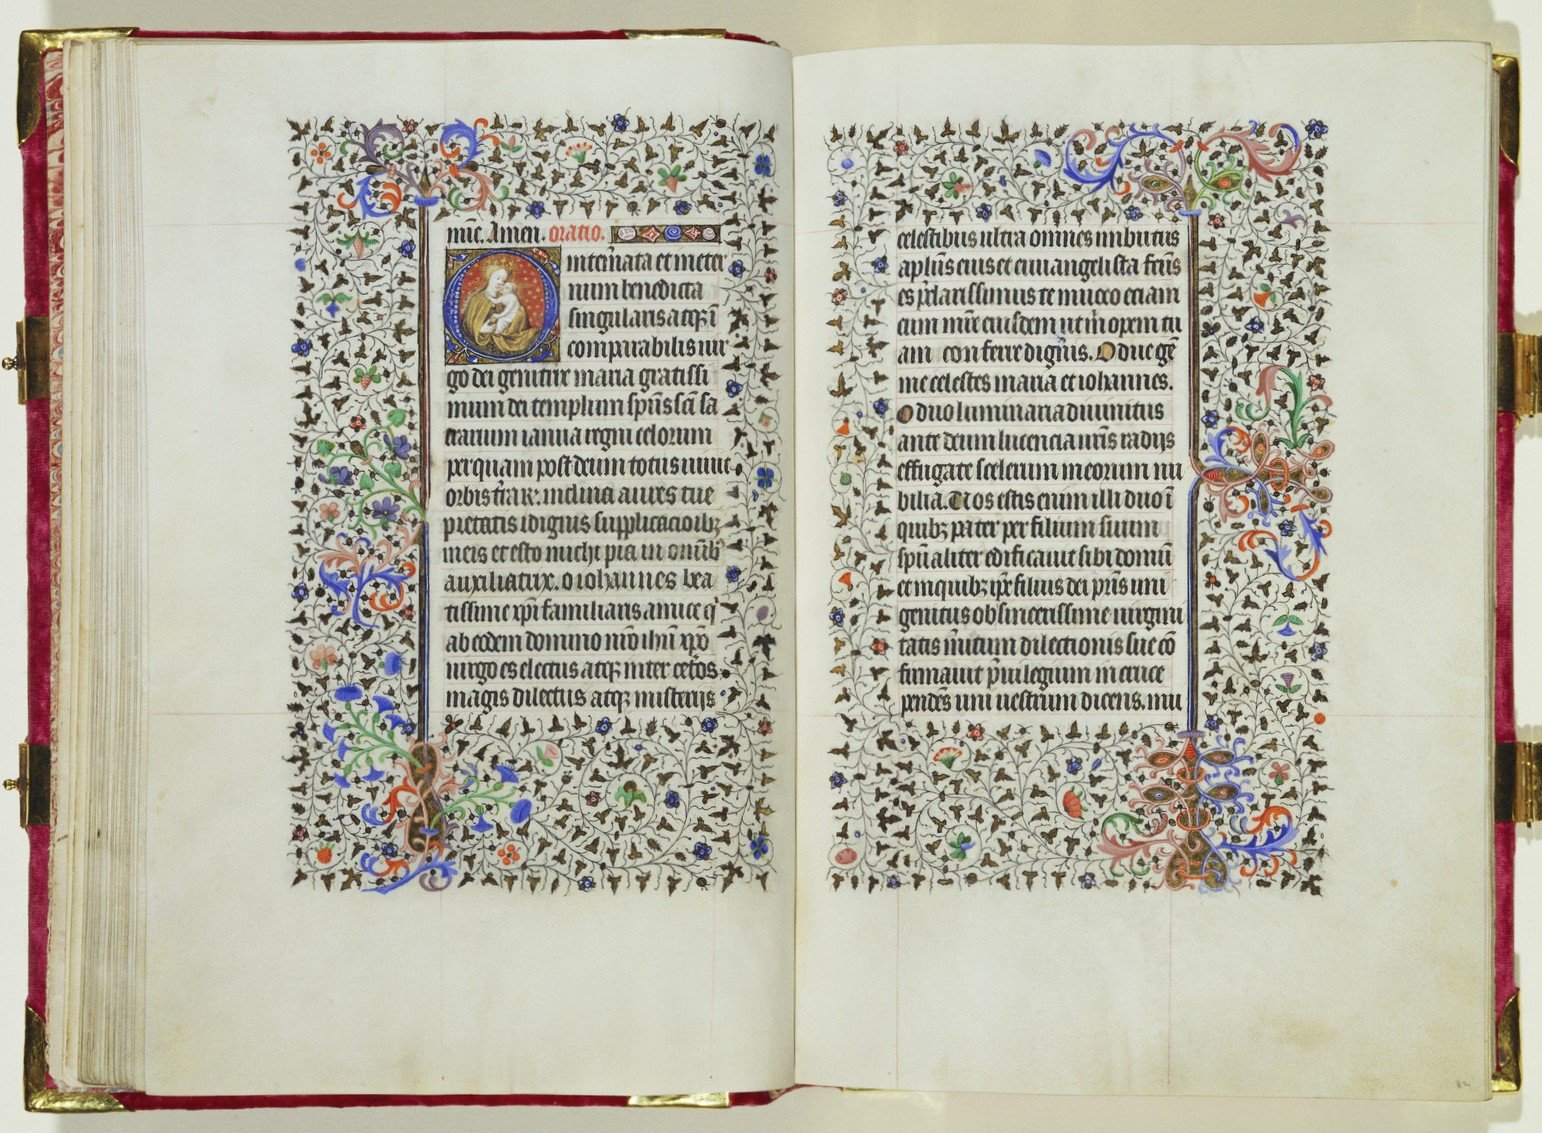 mie. Amen. oratio.
O intemerata et in eter
num benedicta
singularis atq; i
comparabilis vir
go dei genitrix maria gratissi
mum dei templum spūs scī sa
crarium ianua regni celorum
per quam post deum totus vivit
orbis trar. inclina aures tue
pietatis idignis supplicacioib;
meis et esto michi pia in omīb;
auxiliatrix. o iohannes bea
tissime xpī familiaris amice q̄
ab eodem domino nrō ihū xpō
virgo es electus atq; inter cetōs
magis dilectus atq; misterijs
celestibus ultra omnes imbutus
aplūs eius et euuangelista fcūs
es pclarissimus te invoco eciam
cum mrē eiusdem ut in opem tu
am conferre dignīs. O due gē
me celestes maria et iohannes.
O duo luminaria divinitus
ante deum lucencia vrīs radijs
effugate scelerum meorum nu
bilia. Vos estis enim illi duo ī
quib; pater per filium suum
spūaliter edificavit sibi domū
et in quib; ipē filius dei prīs uni
genitus ob sincerissime virgini
tatis mītum dilectionis sue cō
firmavit pūilegium in cruce
pendēs uni vestrum dicens. mu
82